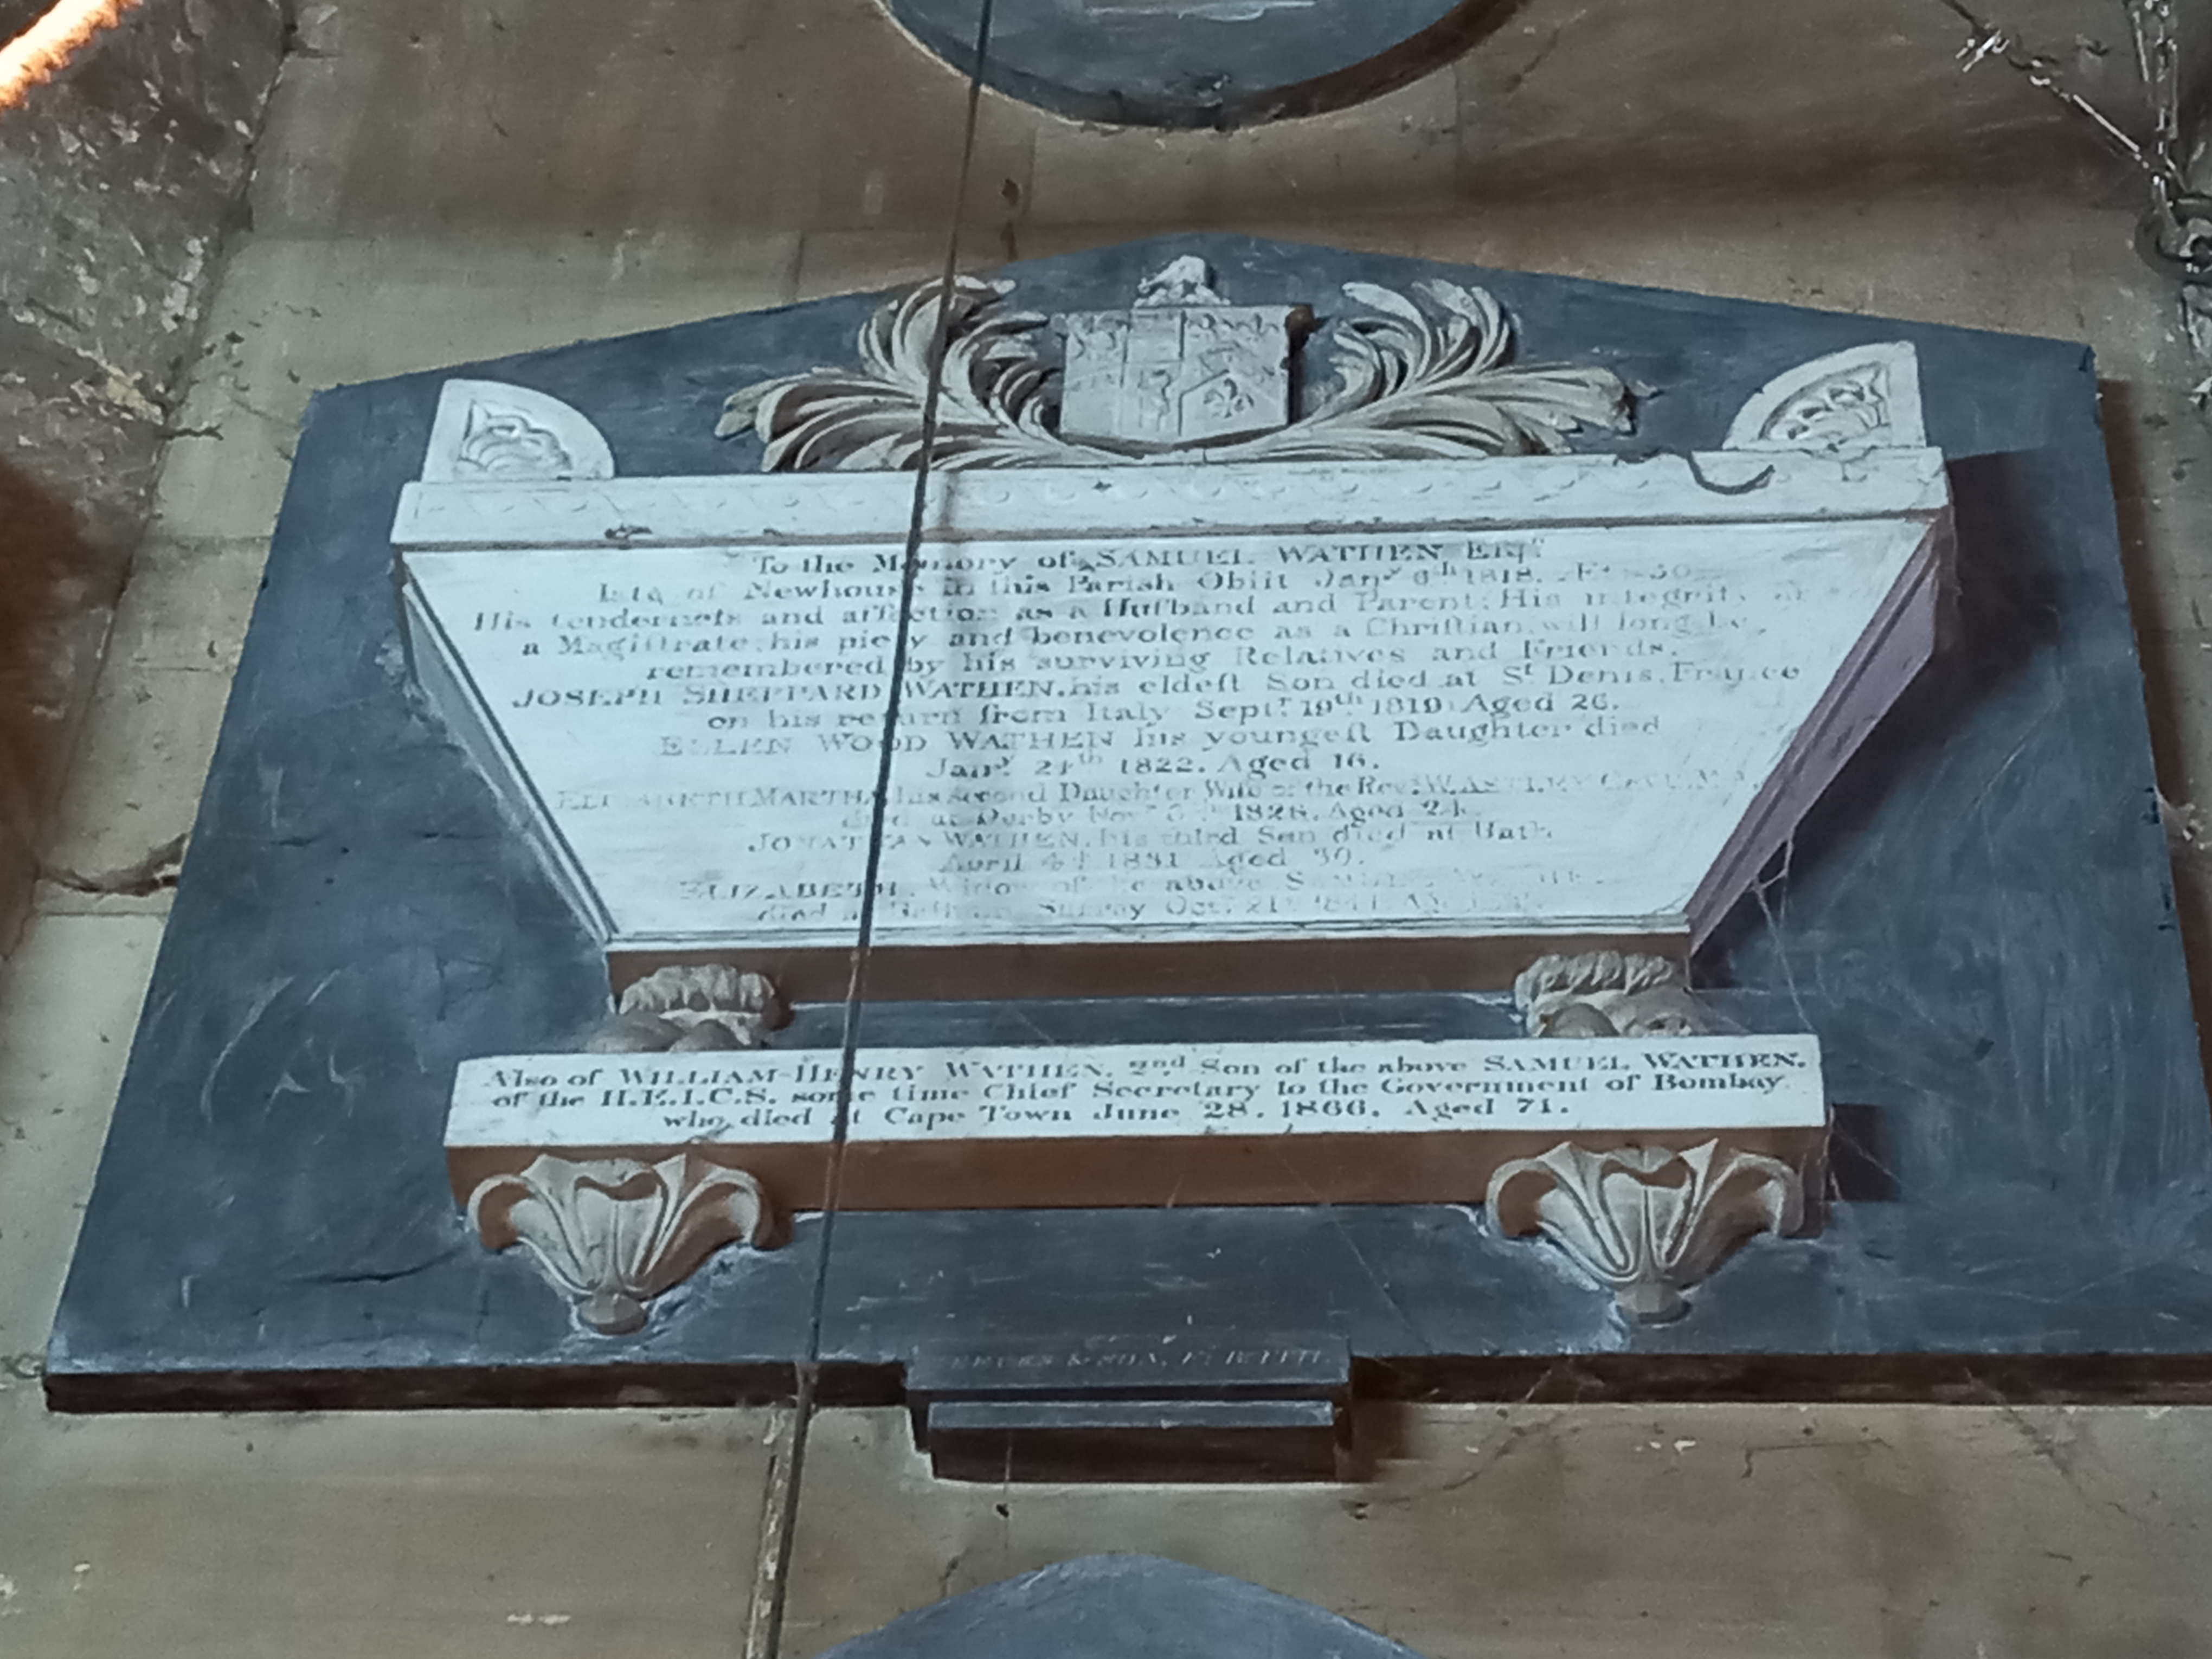 To the Memory of SAMUEL WATHEN Esqr
late of Newhouse in this Parish Obiit Jany 6th 1818.
His tenderneſs and affection as a Huſband and Parent; His integrity as
a Magiſtrate, his piety and benevolence as a Chriſtian, will long be
remembered by his surviving Relatives and Friends.
JOSEPH SHEPPARD WATHEN, his eldeſt Son died at St Denis, France
on his return from Italy Septr 19th 1819 Aged 26.
ELLEN WOOD WATHEN his youngeſt Daughter died
Jany 24th 1822. Aged 16.
ELIZABETH MARTHA, his second Daughter Wife of the Revd
died at Derby Novr 1828. Aged 24.
JONATHAN WATHEN, his third Son died at Bath
April 4th 1831 Aged 30.
ELIZABETH, Widow of the above SAMUEL WATHEN
died at Surrey Octr 21st
Also of WILLIAM-HENRY WATHEN. 2nd Son of the above SAMUEL WATHEN.
of the H.E.I.C.S. some time Chief Secretary to the Government of Bombay.
who died at Cape Town June 28. 1866. Aged 71.
& SON,